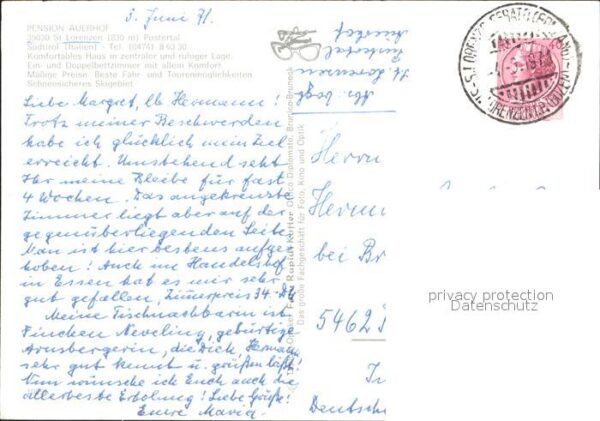 3. Juni 71.
PENSION AUERHOF
39030 St. Lorenzen (830 m) Pustertal
Südtirol (Italien) Tel. (04741) 8 40 30
Komfortables Haus in zentraler und ruhiger Lage.
Ein- und Doppelbettzimmer mit allem Komfort.
Mäßige Preise. Beste Fahr- und Tourenmöglichkeiten
Schneesicheres Skigebiet
Liebe Margret, lb. Hermann!
Trotz meiner Beschwerden
habe ich glücklich mein Ziel
erreicht. Umstehend seht
Ihr meine Bleibe für fast
4 Wochen. Das angekreuzte
Zimmer liegt aber auf der
gegenüberliegenden Seite.
Man ist hier bestens aufge-
hoben! Auch im Handelshof
in Essen hat es mir sehr
gut gefallen, Zimmerpreis 34.-
Meine Tischnachbarin ist
Finchen Neveling, gebürtige
Arnsbergerin, die Dich, Hermann,
sehr gut kennt u. grüßen läßt!
Nun wünsche ich Euch auch die
allerbeste Erholung! Liebe Grüße!
Eure Maria
Das große Fachgeschäft für Foto, Kino und Optik
St. Lorenzen
Pustertal
Auerhof
S. LORENZO
Herrn
Herm
bei Br
5462
Deutsch
privacy protection
Datenschutz